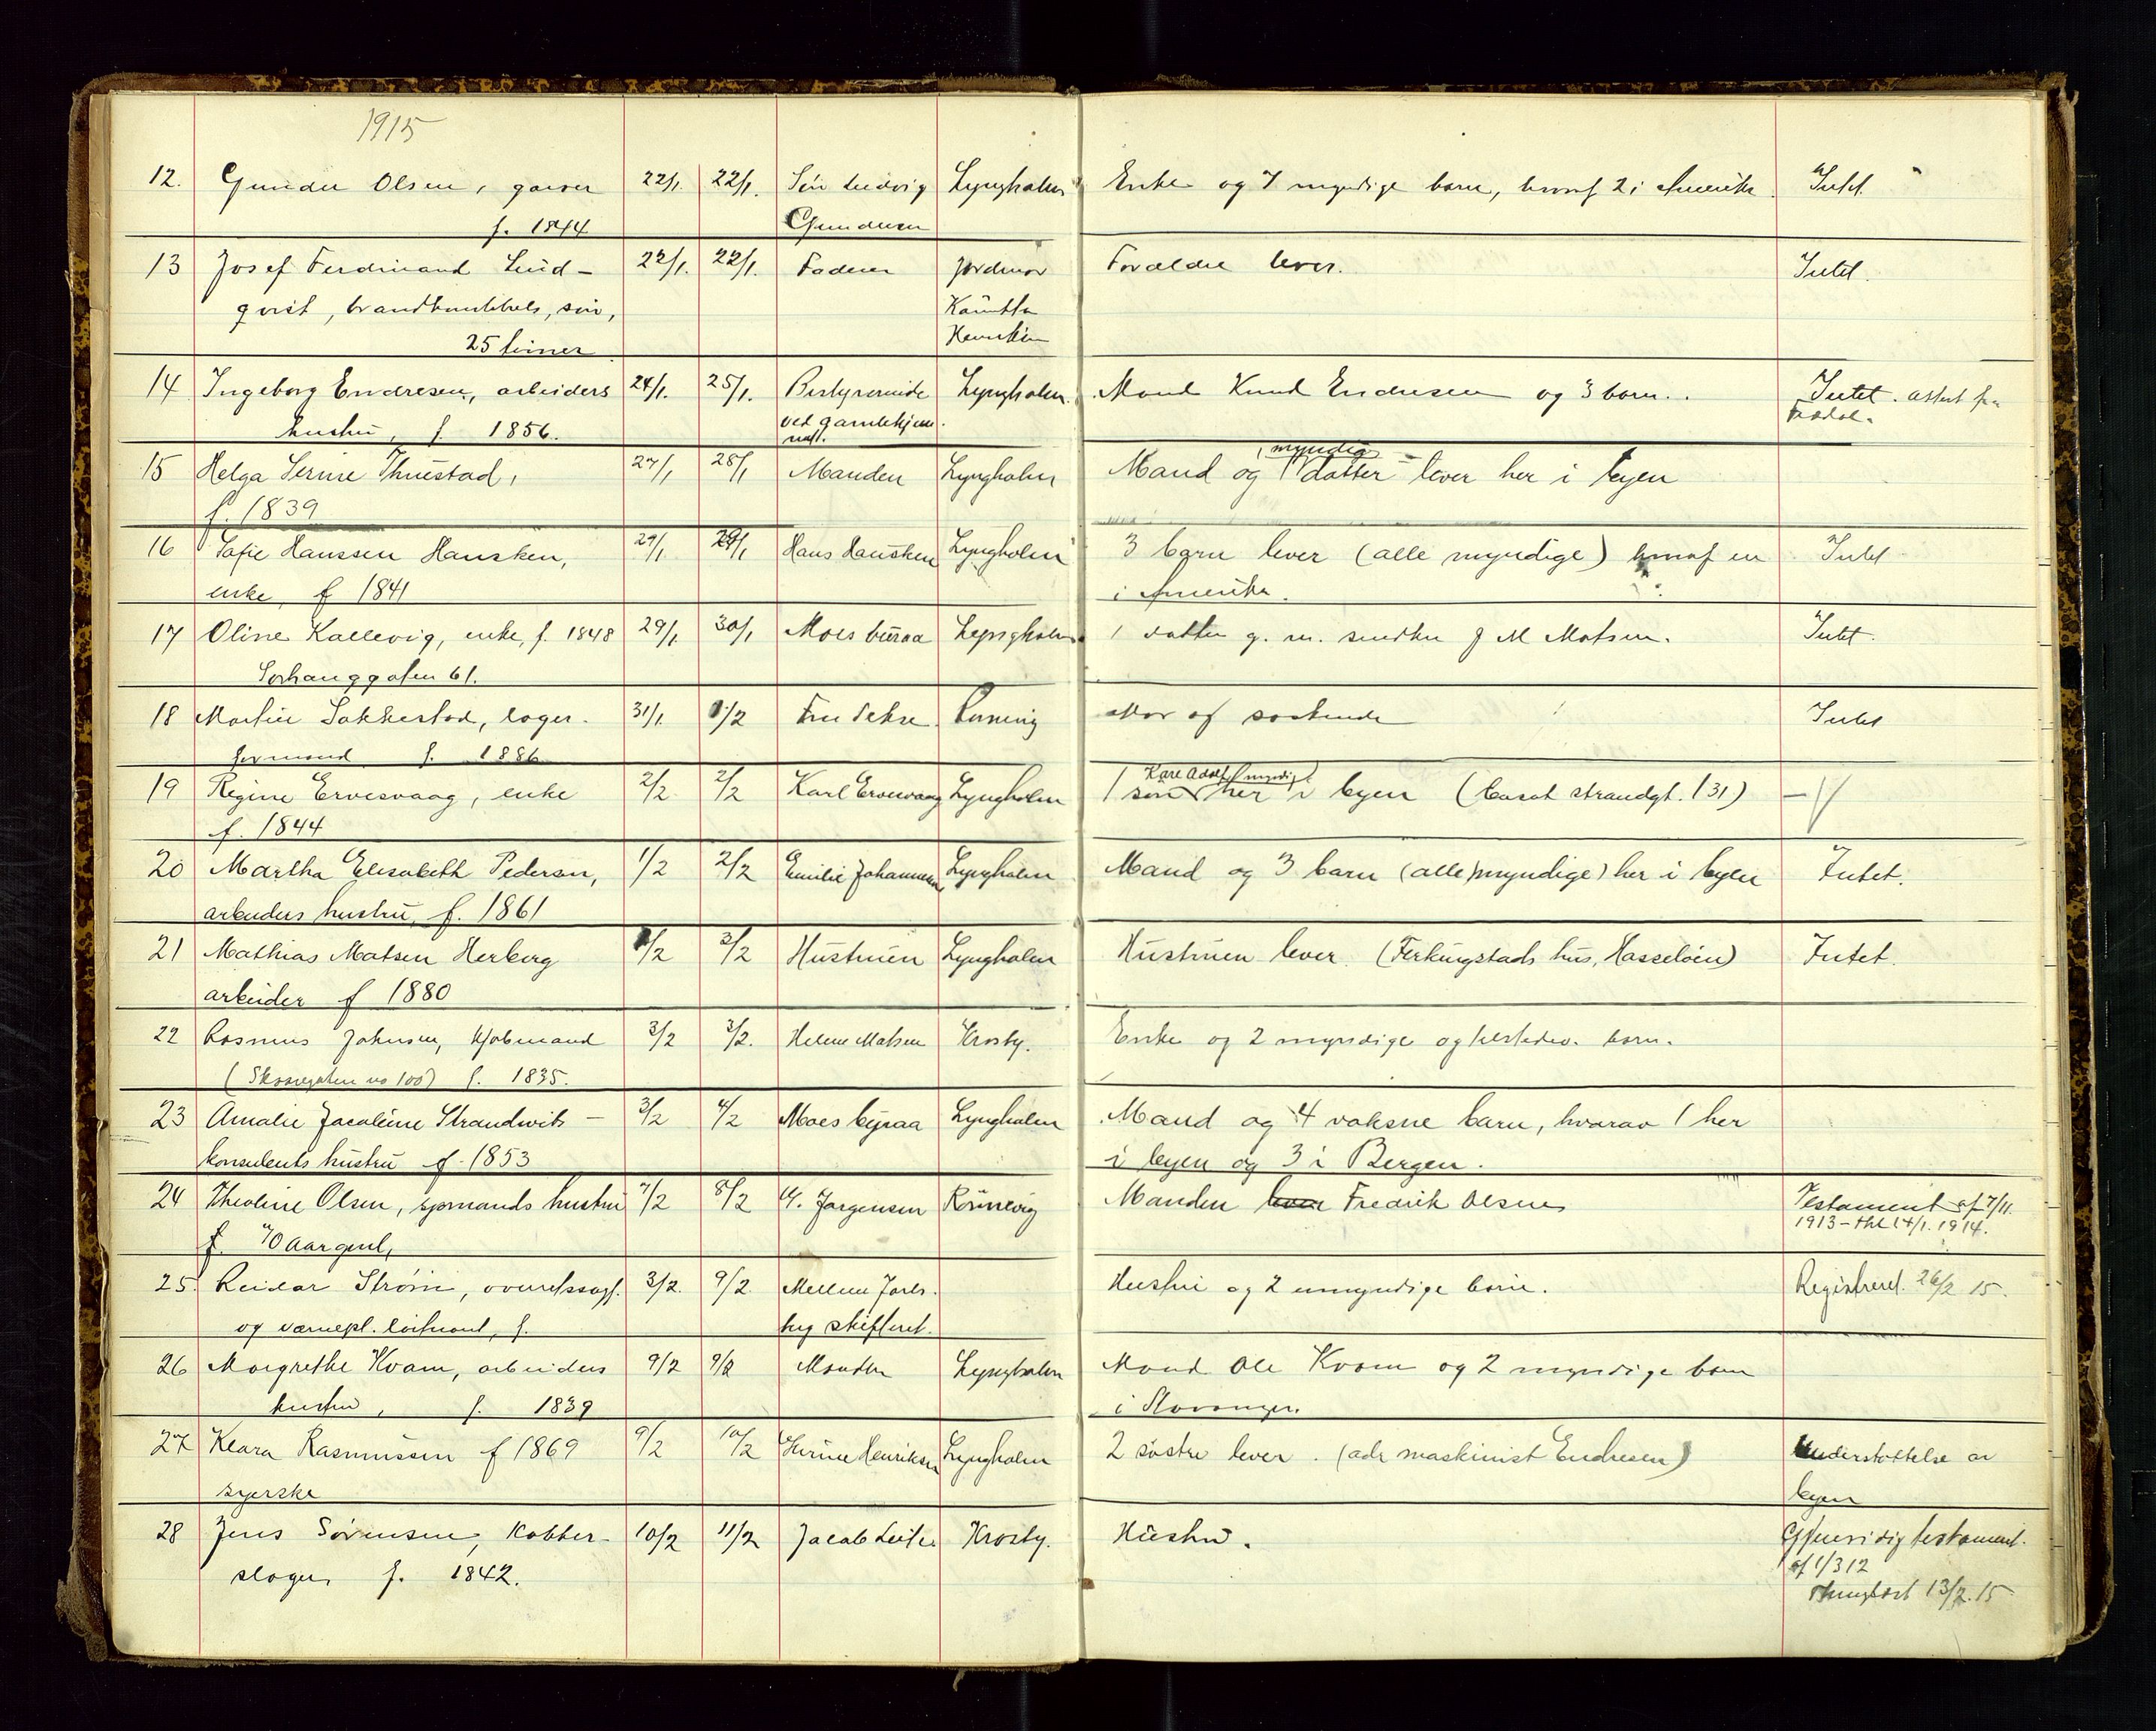 1915
12. Gunder Olsen, garver 22/1. 22/1. Sön Ludvig Lyngholm Enke og 7 myndige barn, hvoraf 2 i Amerika. Intet.
f. 1844 Gundersen
13 Josef Ferdinand Lind- 22/1. 22/1. Faderen Jordmor Forældre lever. Intet.
qvist, brandkonstabels, sön,
25 timer
14 Ingeborg Endresen, arbeiders 24/1. 25/1. Bestyrerinde Lyngholm. Mand Knud Endresen og 3 barn. Intet. Attest fra
hustru, f. 1856. ved gamlehjem
15 Helga Serine Thuestad, 27/1 28/1 Manden Lyngholm Mand og 1 myndig datter lever her i byen
f. 1839
16 Sofie Hanssen Hausken, 29/1 29/1 Hans Hausken Lyngholm 3 barn lever (alle myndige) hvoraf en Intet
enke f 1841 i Amerika.
17 Oline Kallevig, enke, f. 1848 29/1 30/1 Moes büraa Lyngholm 1 datter g. m. snedker J M Matsen. Intet.
Sörhauggaten 61.
18 Martin Sakkestad, lager- 31/1. 1/2 Fru Rönnevig Mor og söskende Intet
formand f. 1886
19 Regine Ervesvaag, enke 2/2 2/2 Karl Ervesvaag Lyngholm 1 sön Karl Adolf (myndig) her i byen (bosat strandgt. 131) –
f. 1844
20 Martha Elisabeth Pedersen, 1/2 2/2 Emilie Johannessen Lyngholm Mand og 3 barn (alle myndige) her i byen Intet.
arbeiders hustru, f. 1861
21 Mathias Matsen Herberg 2/2 Hustruen Lyngholm Hustruen lever. (Ferkingstads hus, Hasselöen) Intet.
arbeider f 1880
22 Rasmus Johnsen, kjöbmand 3/2 3/2. Helene Matsen Krosby. Enke og 2 myndige og tilstedev. barn.
(Skaaregaten no 100) f. 1835.
23 Amalie Jacobine Strandwits – 3/2 4/2 Moes byraa Lyngholm Mand og 4 voksne barn, hvorav 1 her
konsulents hustru f. 1853 i byen og 3 i Bergen.
24 Theoline Olsen, sjömands hustru 7/2 8/2 Jørgensen Rönnevig Manden lever Fredrik Olsen Testament af 7/11.
f. 70 aar gml, 1913 – thl 14/1. 1914.
25. Reidar Ström, overretssagf. 3/2. 9/2. Mellem Jarls- Hustru og 2 umyndige barn. Registreret 26/2 15.
og værnepl. löitnant, f. berg skifteret.
26 Margrethe Kvam, arbeiders 9/2 9/2 Manden Lyngholm Mand Ole Kvam og 2 myndige barn
hustru, f. 1839 i Stavanger.
27 Klara Rasmussen f 1869 9/2 10/2 Serine Henriksen Lyngholm 2 söstre lever. (adr maskinist Endresen) Understöttelse av
syerske byen
28 Jens Sörensen, kobber- 10/2 11/2 Jacob Krosby. Hustru. Gjensidig testament.
slager, f. 1842. af 1/3 12
thinglæst 13/2. 15